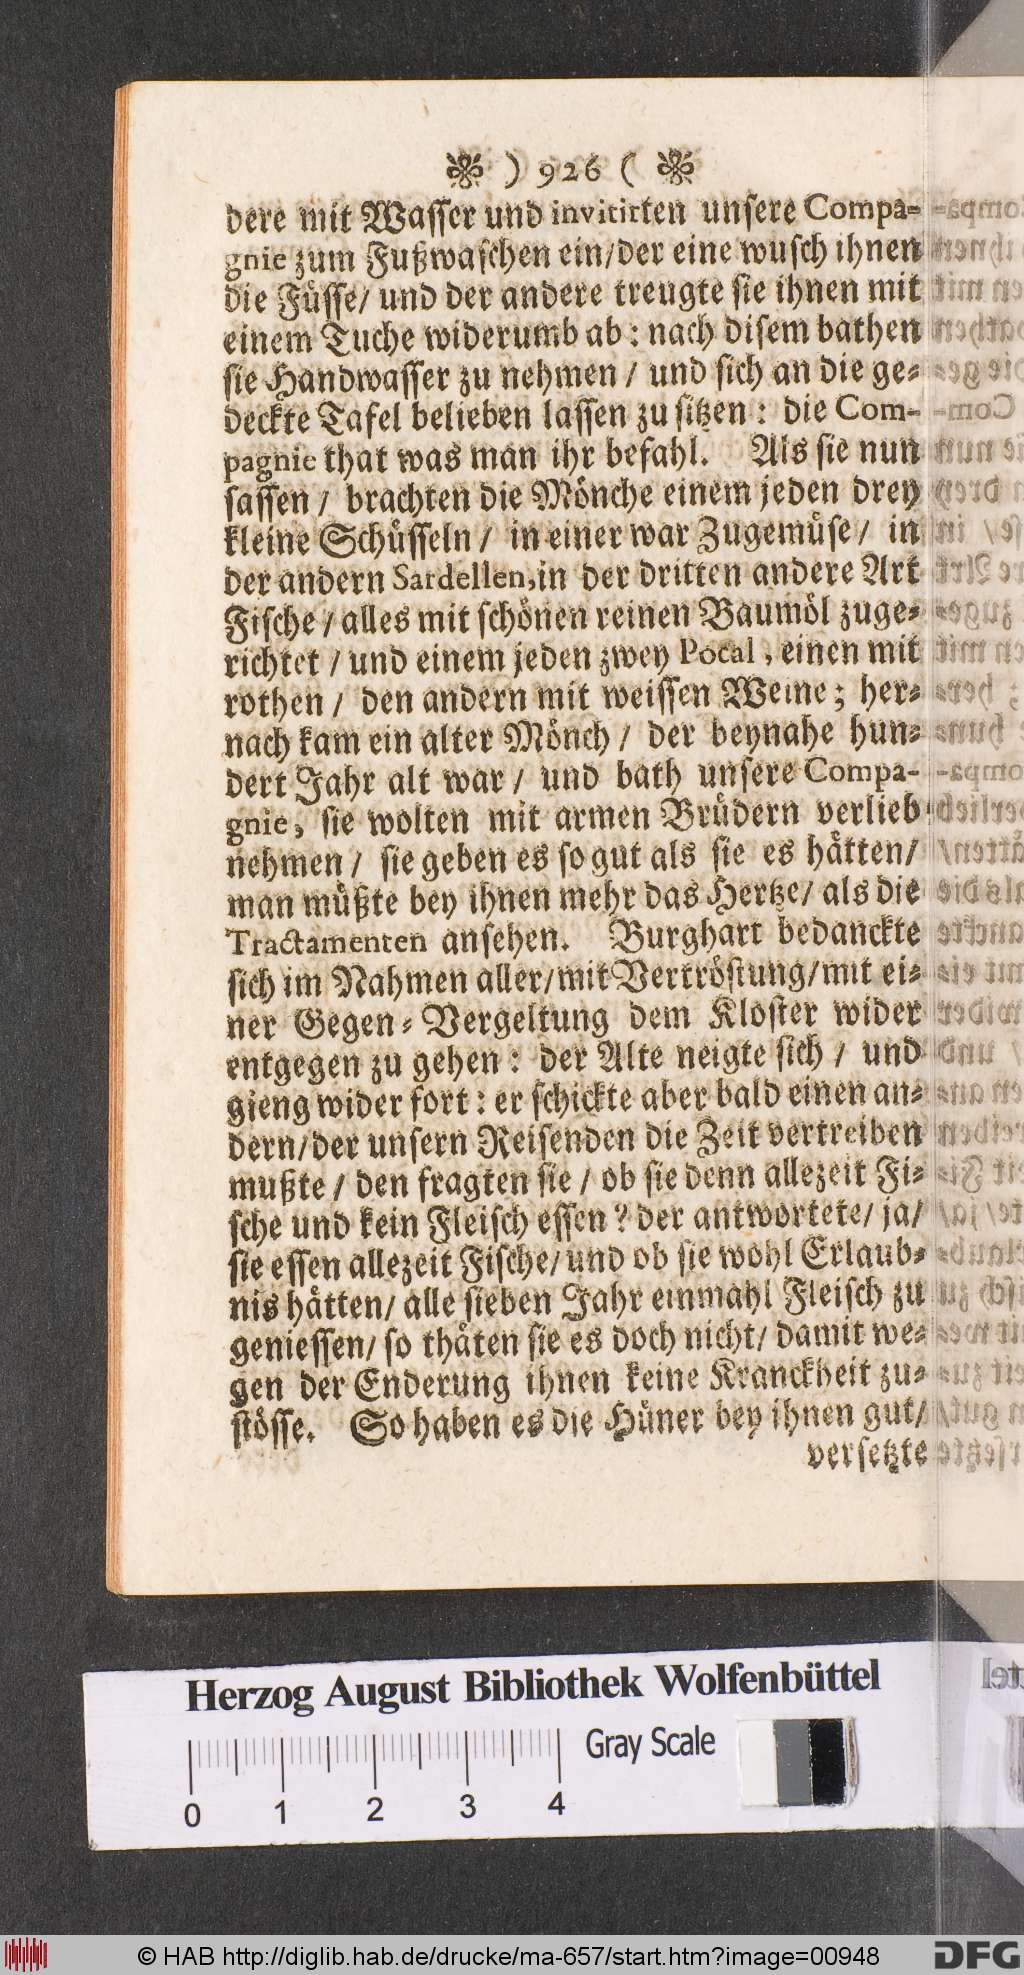 ) 926 (
dere mit Wasser und invitirten unsere Compa-
gnie zum Fußwaschen ein/der eine wusch ihnen
die Füsse/ und der andere treugte sie ihnen mit
einem Tuche widerumb ab: nach disem bathen
sie Handwasser zu nehmen / und sich an die ge-
deckte Tafel belieben lassen zu sitzen: die Com-
pagnie that was man ihr befahl. Als sie nun
sassen / brachten die Mönche einem jeden drey
kleine Schüsseln / in einer war Zugemüse / in
der andern Sardellen, in der dritten andere Art
Fische / alles mit schönen reinen Baumöl zuge-
richtet / und einem jeden zwey Pocal, einen mit
rothen / den andern mit weissen Weine; her-
nach kam ein alter Mönch / der beynahe hun-
dert Jahr alt war / und bath unsere Compa-
gnie, sie wolten mit armen Brüdern verlieb
nehmen / sie geben es so gut als sie es hätten/
man müßte bey ihnen mehr das Hertze/ als die
Tractamenten ansehen. Burghart bedanckte
sich im Nahmen aller/mit Vertröstung/mit ei-
ner Gegen-Vergeltung dem Kloster wider
entgegen zu gehen: der Alte neigte sich / und
gieng wider fort: er schickte aber bald einen an-
dern/der unsern Reisenden die Zeit vertreiben
mußte / den fragten sie / ob sie denn allezeit Fi-
sche und kein Fleisch essen? der antwortete/ ja/
sie essen allezeit Fische/und ob sie wohl Erlaub-
nis hätten/ alle sieben Jahr einmahl Fleisch zu
geniessen/ so thäten sie es doch nicht/ damit we-
gen der Enderung ihnen keine Kranckheit zu-
stösse. So haben es die Hüner bey ihnen gut/
versetzte
Herzog August Bibliothek Wolfenbüttel
Gray Scale
0 1 2 3 4
© HAB http://diglib.hab.de/drucke/ma-657/start.htm?image=00948
DFG